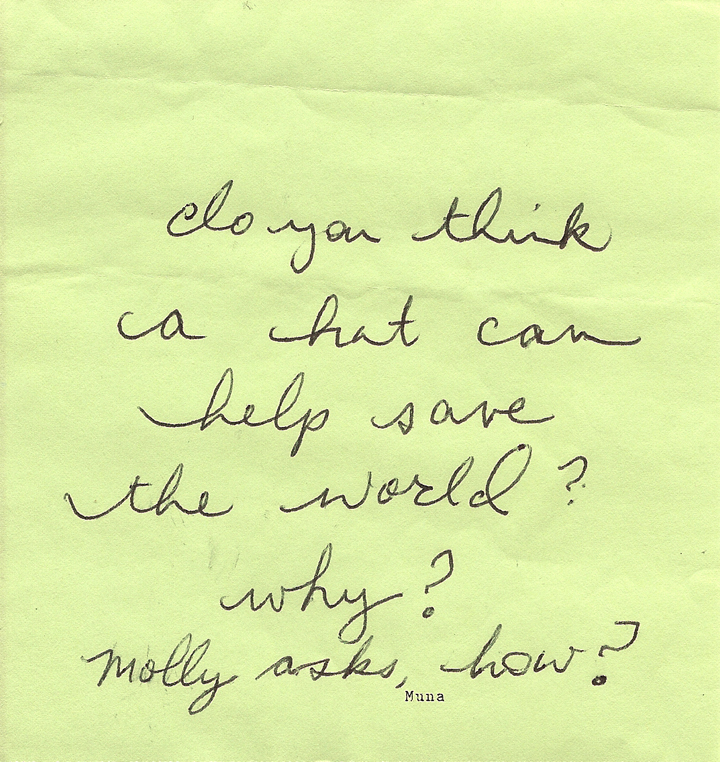 do you think
a hat can
help save
the world?
why?
Molly asks, how?
Muna